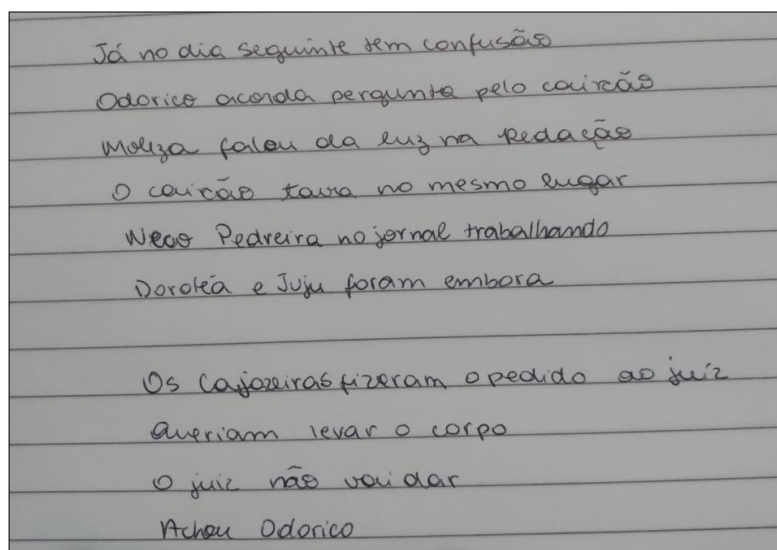 Já no dia seguinte tem confusão
Odorico acorda pergunta pelo caixão
Moliza falou da luz na redação
O caixão tava no mesmo lugar
Neco Pedreira no jornal trabalhando
Dorotéa e Juju foram embora
Os Cajazeiras fizeram o pedido ao juiz
Queriam levar o corpo
O juiz não vai dar
Achou Odorico